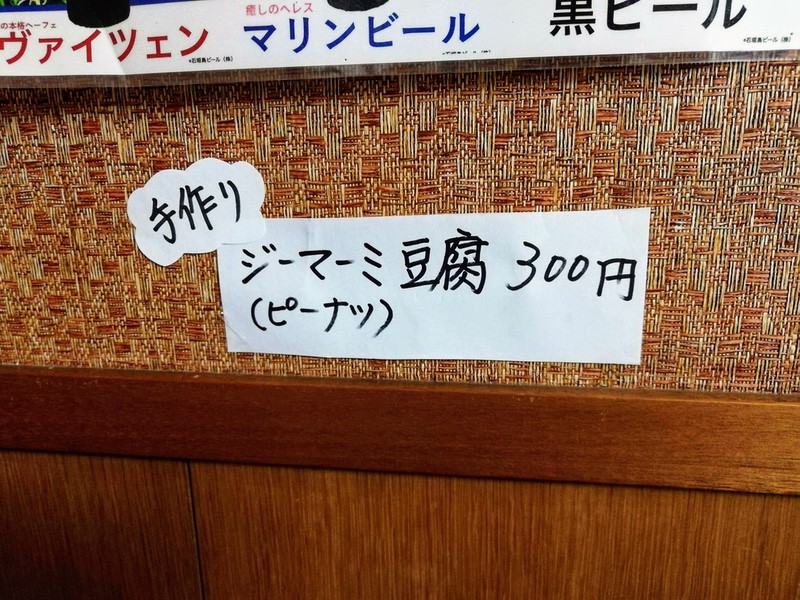 の本格ヘーフェ
ヴァイツェン
*石垣島ビール(株)
癒しのヘレス
マリンビール
黒ビール
*石垣島ビール(株)
手作り
ジーマーミ豆腐 300円
(ピーナツ)